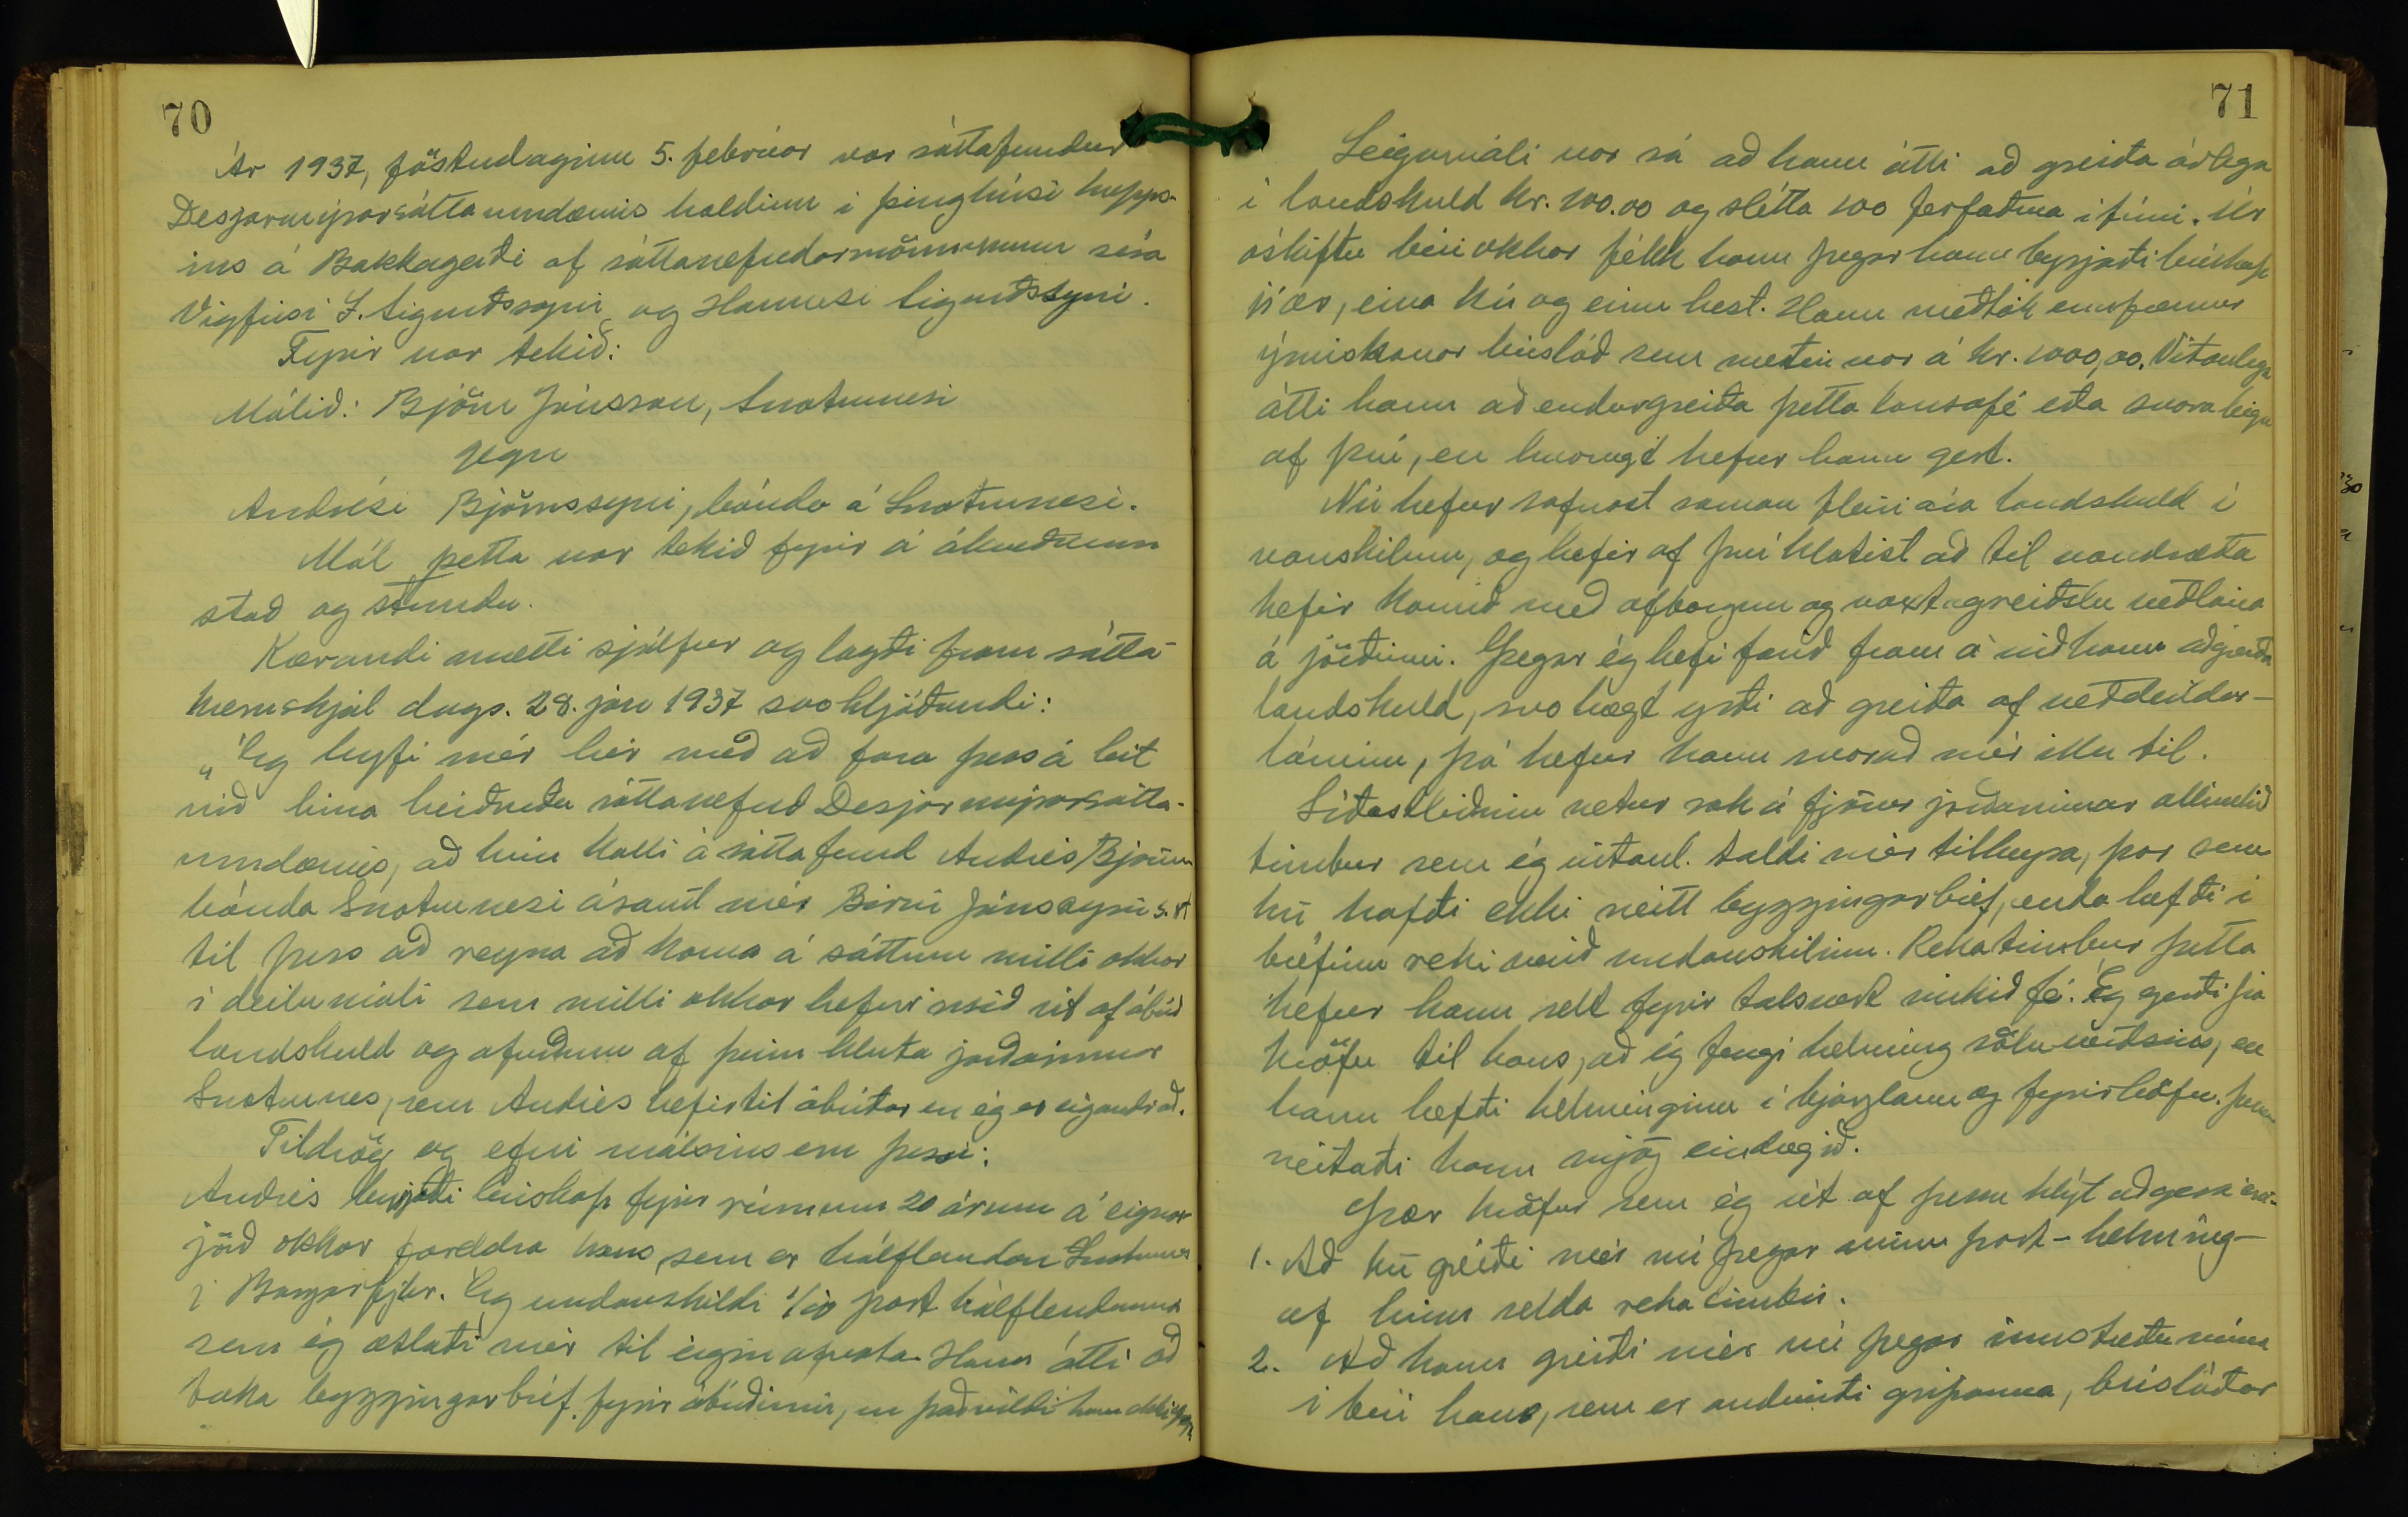 70
Ár 1937, föstudaginn 5. febrúar var sáttafundur
Desjarmýrarsáttaumdæmis haldinn í þinghúsi hrepps-
ins á Bakkagerði af sáttanefndarmönnunum séra
Vigfúsi I. Sigurðssyni og Hannesi Sigurðssyni.
Fyrir var tekið:
Málið: Björn Jónsson, Snotrunesi
gegn
Andrési Björnssyni, bónda á Snotrunesi.
Mál þetta var tekið fyrir á ákveðnum
stað og stundu.
Kærandi mætti sjálfur og lagði fram sátta-
kæruskjal dags. 28. jan 1937 svohljóðandi:
„Eg leyfi mér hér með að fara þess á leit
við hina heiðruðu sáttanefnd Desjarmýrarsátta-
umdæmis, að hún kalli á sáttafund Andrés Björnss
bónda Snotrunesi ásamt mér Birni Jónssyni s. st
til þess að reyna að koma á sáttum milli okkar
í deilumáli sem milli okkar hefur risið út af ábúð
landskuld og afnotum af þeim hluta jarðarinnar
Snotrunes, sem Andrés hefir til ábúðar en ég er eigandi að.
Tildrög og efni málsins eru þessi:
Andrés byrjaði búskap fyrir rúmum 20 árum á eignar
jörð okkar foreldra hans sem er hálflendan Snotrunes
í Borgarfjhr. Eg undanskildi 1/10 part hálflendunnar
sem ég ætlaði mér til eigin afnota. Hann átti að
taka byggingarbréf fyrir ábúðinni, en það vildi hann ekki þyggja
71
Leigumáli var sá að hann átti að greiða árlega
í landskuld kr. 100.00 og slétta 100 ferfaðma í túni. Úr
óskiftu búi okkar fékk hann þegar hann byrjaði búskap
ær, eina kú og einn hest. Hann meðtók ennfremur
ýmiskonar búslóð sem metin var á kr. 1000,00. Vitanlega
átti hann að endurgreiða þetta lausafé eða svara leigu
af því, en hvorugt hefur hann gert.
Nú hefur safnast saman fleiri ára landskuld í
vanskilum, og hefir af því hlotist að til vandræða
hefir komið með afborgun og vaxtagreiðslu veðlána
á jörðinni. Þegar ég hefi farið fram á við hann að greiða
landskuld, svo hægt yrði að greiða af veðdeildar-
láninu, þá hefur hann svarað mér illu til.
Síðastliðinn vetur rak á fjörur jarðarinnar allmikið
timbur sem ég vitanl. taldi mér tilheyra, þar sem
hú hafði ekki neitt byggingarbréf, enda hefði í
bréfinu reki verið undanskilinn. Rekatimbur þetta
hefur hann selt fyrir talsvert mikið fé. Eg gerði þá
kröfu til hans, að ég fengi helming söluverðsins, en
hann hefði helminginn í bjarglaun og fyrirhöfn. Þessu
neitaði hann mjög eindregið.
Þær kröfur sem ég út af þessu hlýt að gera eru:
1. Að hú greiði mér nú þegar minn part – helming –
af hinu selda rekatimbri.
2. Að hann greiði mér nú þegar innstæðu mína
í búi hans, sem er andvirði gripanna, búslóðar